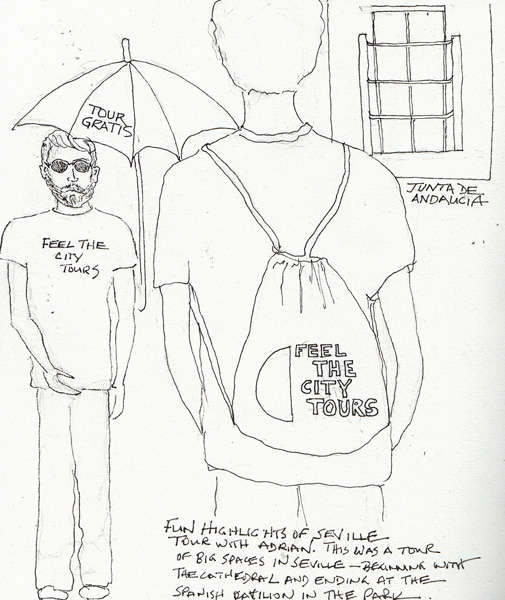 TOUR
GRATIS
JUNTA DE
ANDALUCIA
FEEL THE
CITY
TOURS
FEEL
THE
CITY
TOURS
FUN HIGHLIGHTS OF SEVILLE
TOUR WITH ADRIAN. THIS WAS A TOUR
OF BIG SPACES IN SEVILLE — BEGINNING WITH
THE CATHEDRAL AND ENDING AT THE
SPANISH PAVILION IN THE PARK.